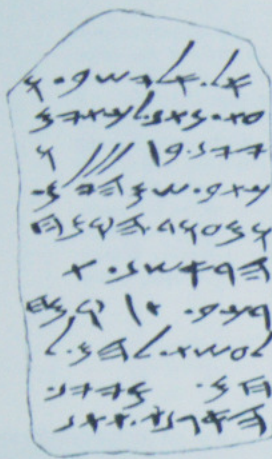 𐤀𐤋.𐤀𐤋𐤉𐤔𐤁.𐤅
𐤏𐤕.𐤍𐤕𐤍.𐤋𐤊𐤕𐤉𐤌
𐤉𐤉𐤍.𐤁 \ /// 𐤅
𐤊𐤕𐤁.𐤔𐤌 𐤄𐤉𐤌.
𐤅𐤌𐤏𐤅𐤃.𐤄𐤒𐤌𐤇
𐤄𐤓𐤀𐤔𐤍.𐤕
𐤓𐤊𐤁. \ 𐤒𐤌𐤇
𐤋𐤏𐤔𐤕.𐤋𐤄𐤌.𐤋
𐤇𐤌.𐤌𐤉𐤉𐤍.
𐤄𐤀𐤂𐤍𐤕.𐤕𐤕𐤍